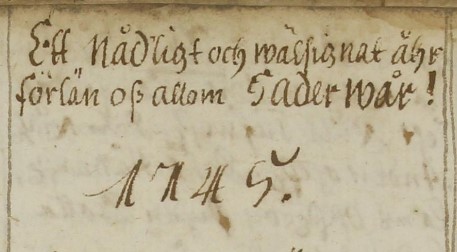 Ett Nådligt och wälsignat åhr
förlän oß allom Fader wår!
1745.